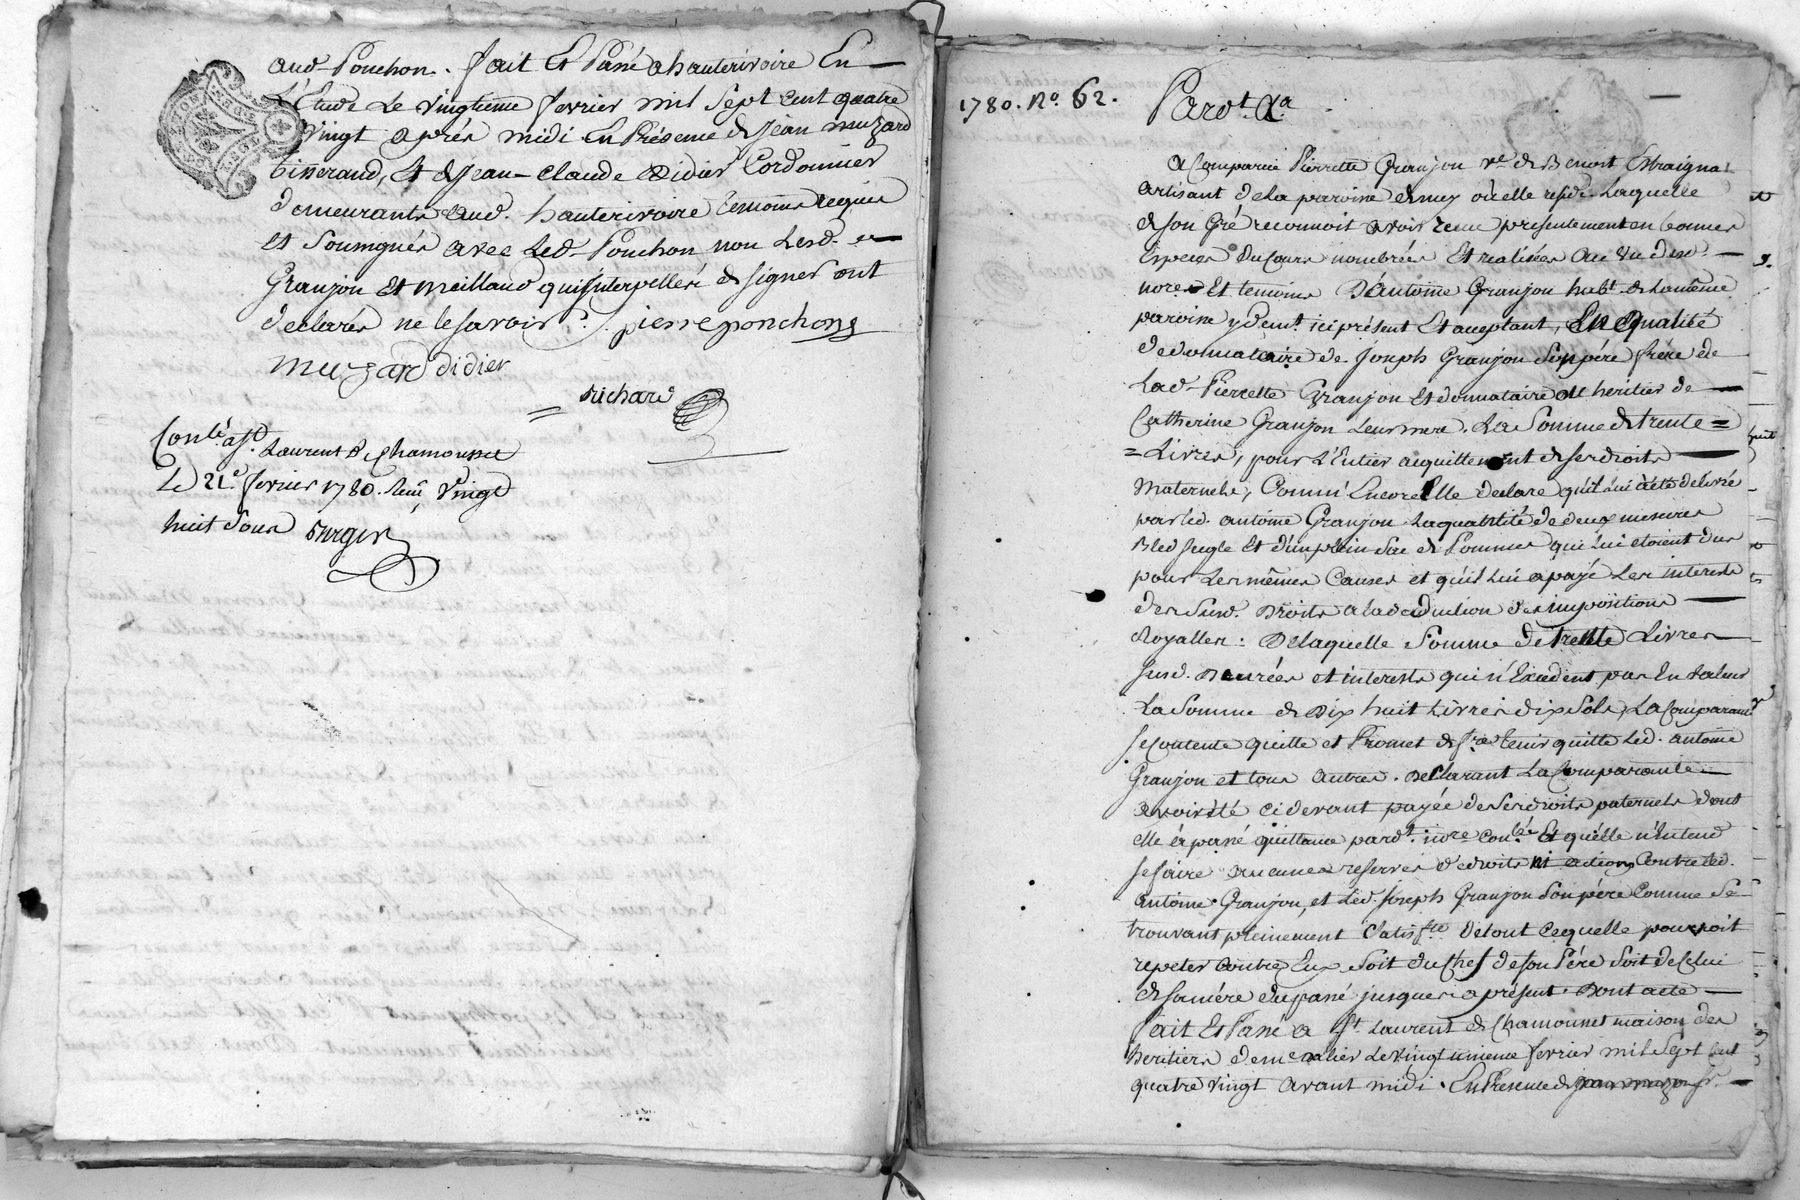 aud. Ponchon. fait Et Passé a hauterivoire En
L'Etude Le vingtieme fevrier mil Sept Cent quatre
vingt après midi En Présence de Jean muzard
tisserand, Et de Jean-Claude Didier Cordonnier
demeurants aud. hauterivoire temoins requis
et Soussignés avec Led. Ponchon non Lesd.
Granjon Et meillaud qui Interpellés de signer ont
declarés ne le savoir. pierre ponchon
muzard didier
Richard
Conlé. a St. Laurent De Chamousset
Le 21e. fevrier 1780. Reçu vingt
huit Sous
1780. No. 62.
Pardt. &a.
a Comparue Pierrette Granjon ve. de Benoit
artisant de la paroisse de meys ou elle reside Laquelle
de son Gré reconnoit avoir recu presentement en bonnes
Especes du Cours nombrées Et realisées au vu desd.
nores Et temoins D'antoine Granjon habt. de la même
paroisse y demt. ici présent Et acceptant, En Qualité
de donnataire de Joseph Granjon Son père frère de
Lad. Pierrette Granjon Et donnataire et heritier de
Catherine Granjon Leur mere. La Somme de trente =
= Livres, pour L'Entier acquittement de ses droits
Maternels; Comm' Encore Elle declare qu'il lui a eté delivré
par led. antoine Granjon La quantité de deux mesures
Bled seigle Et d'un plein sac de Pommes qui Lui etoient dus
pour Les mêmes Causes et qu'il Lui a payé Les interets
des Susd. Droits a la deduction des impositions
Royalles: De laquelle Somme de trente Livres
susd. Denrées et interets qui n'Excedent pas En valeur
La Somme de Dix huit Livres dix Sols, La Comparante
se Contente quitte et Promet de fre. tenir quitte Led. antoine
Granjon et tous autres. Declarant La Comparante
avoir été ci devant payée de Ses droits paternels dont
elle a passé quittance pardt. nore Conlée. Et qu'elle n'Entend
se faire aucunes reserves de droits ni actions Contre led.
antoine Granjon, et Led. Joseph Granjon Son père Comme Se
trouvant pleinement Satisfte. de tout ce quelle pourroit
repeter Contre Eux Soit du Chef de son Père Soit de Celui
de sa mére du passé jusques a présent. Dont acte
fait Et Passé a St. Laurent de Chamousset maison des
heritiers de me. alier Le vingt unieme fevrier mil Sept Cent
quatre vingt avant midi. En Presence de